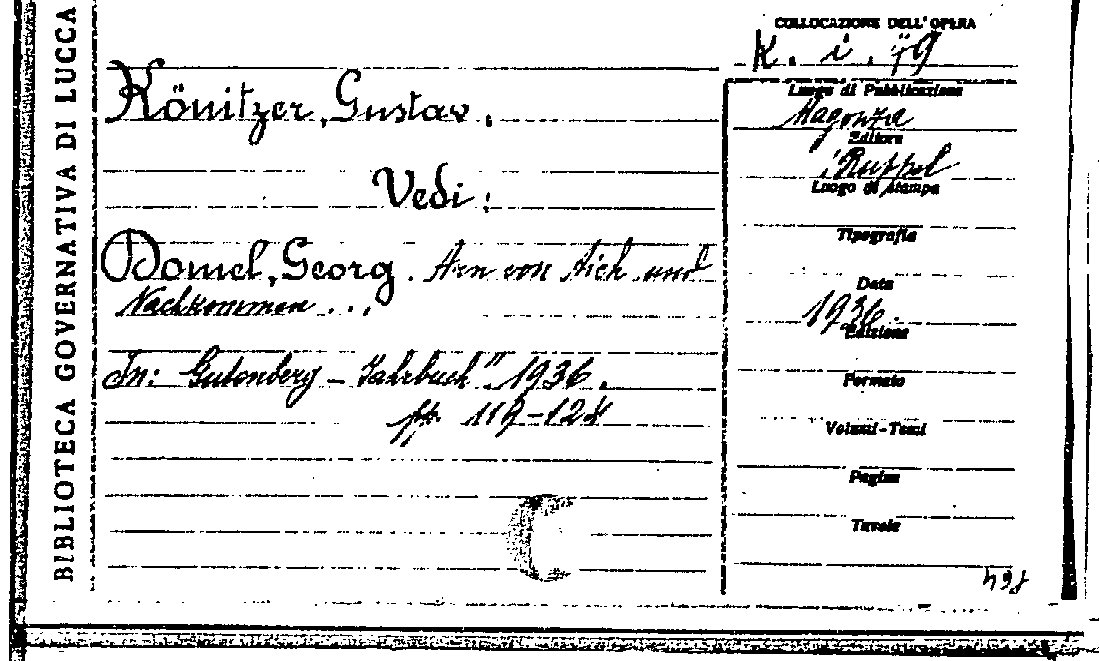 BIBLIOTECA GOVERNATIVA DI LUCCA
Könitzer, Gustav.
Vedi:
Domel, Georg. Arn von Aich und
Nachkommen ...
In: Gutenberg - Jahrbuch" 1936.
pp.
COLLOCAZIONE DELL'OPERA
K. i. 79
Luogo di Pubblicazione
Magonza
Editore
Ruppel
Luogo di Stampa
Tipografia
Data
1936
Edizione
Formato
Volumi-Tomi
Pagine
Tavole